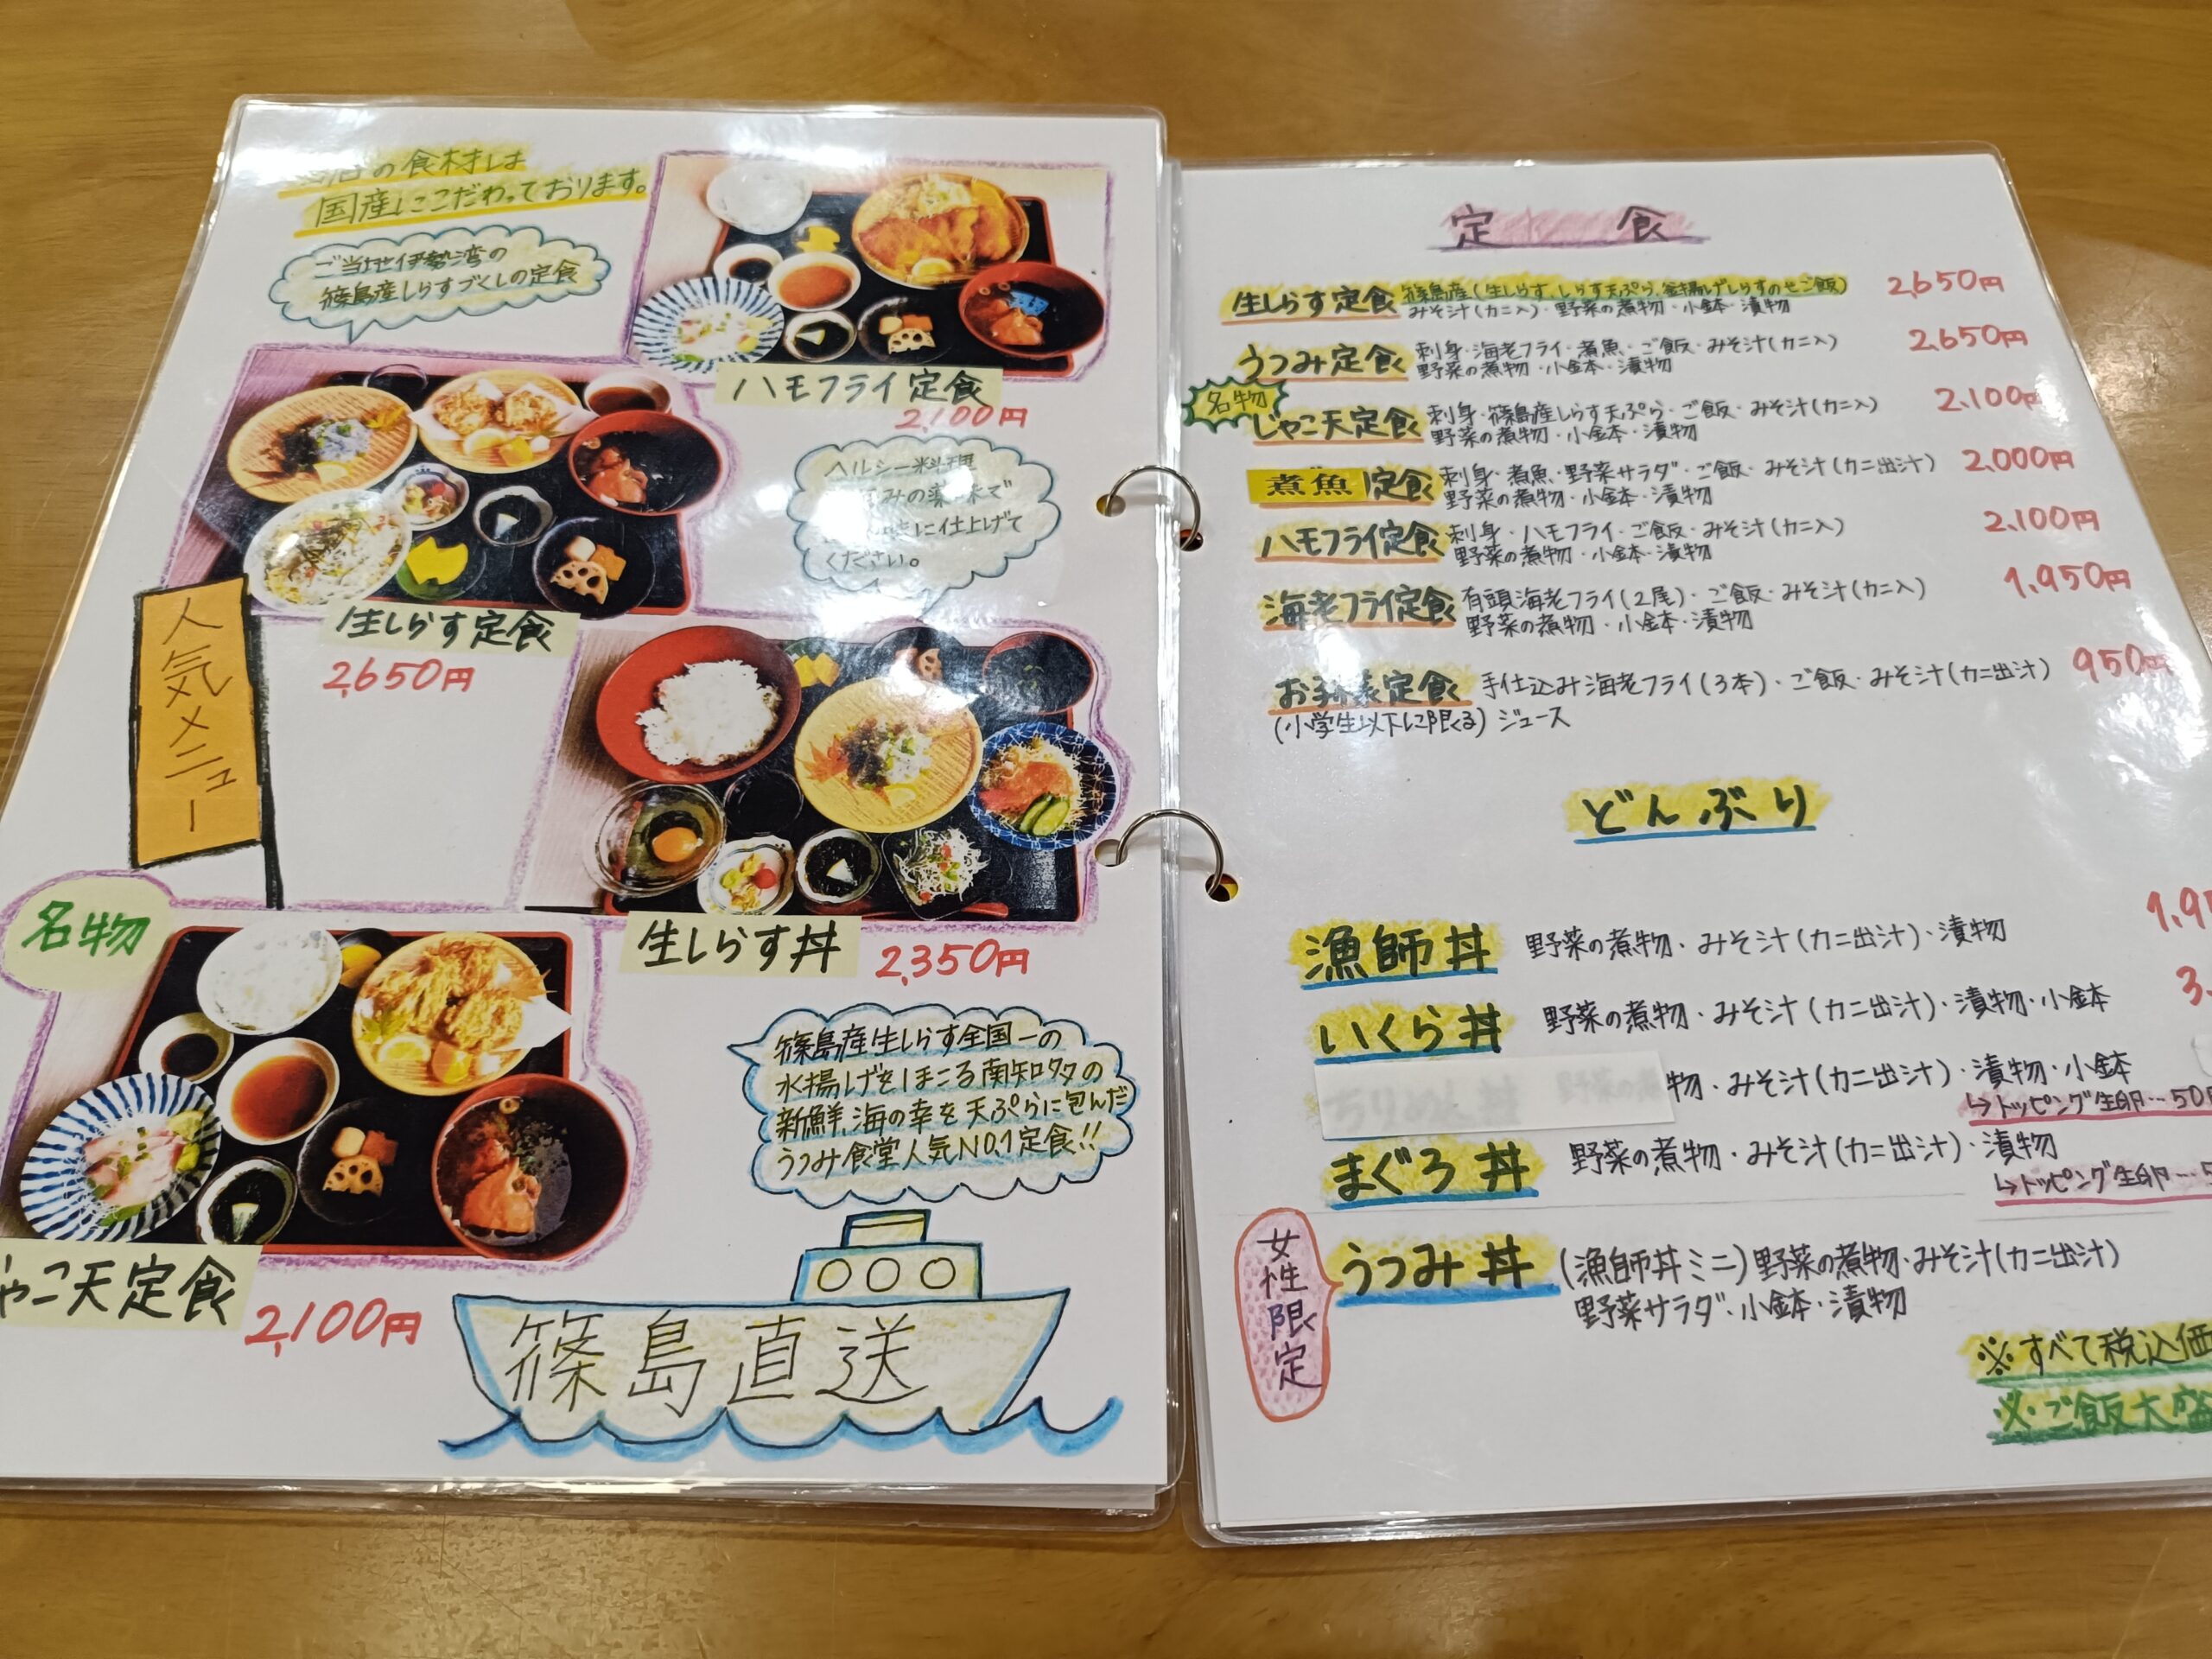 の食材は
国産にこだわっております。
ご当地伊勢湾の
篠島産しらすづくしの定食
ハモフライ定食
2,100円
生しらす定食
2,650円
ヘルシー料理
みの薬味で
に仕上げて
ください。
人気メニュー
生しらす丼 2,350円
名物
ゃこ天定食 2,100円
篠島産生しらす全国一の
水揚げをほこる南知多の
新鮮、海の幸を天ぷらに包んだ
うつみ食堂人気NO.1定食!!
篠島直送
定食
生しらす定食 篠島産(生しらす、しらす天ぷら、釜揚げしらすのせご飯) 2,650円
みそ汁(カニ入)・野菜の煮物・小鉢・漬物
うつみ定食 刺身・海老フライ・煮魚・ご飯・みそ汁(カニ入) 2,650円
野菜の煮物・小鉢・漬物
名物
じゃこ天定食 刺身・篠島産しらす天ぷら・ご飯・みそ汁(カニ入) 2,100円
野菜の煮物・小鉢・漬物
煮魚定食 刺身・煮魚・野菜サラダ・ご飯・みそ汁(カニ出汁) 2,000円
野菜の煮物・小鉢・漬物
ハモフライ定食 刺身・ハモフライ・ご飯・みそ汁(カニ入) 2,100円
野菜の煮物・小鉢・漬物
海老フライ定食 有頭海老フライ(2尾)・ご飯・みそ汁(カニ入) 1,950円
野菜の煮物・小鉢・漬物
お子様定食 手仕込み海老フライ(3本)・ご飯・みそ汁(カニ出汁) 950円
(小学生以下に限る) ジュース
どんぶり
漁師丼 野菜の煮物・みそ汁(カニ出汁)・漬物 1,9
いくら丼 野菜の煮物・みそ汁(カニ出汁)・漬物・小鉢 3,
物・みそ汁(カニ出汁)・漬物・小鉢
↳トッピング生卵…50
まぐろ丼 野菜の煮物・みそ汁(カニ出汁)・漬物
↳トッピング生卵…5
女性限定
うつみ丼 (漁師丼ミニ)野菜の煮物・みそ汁(カニ出汁)
野菜サラダ・小鉢・漬物
※すべて税込価
※ご飯大盛